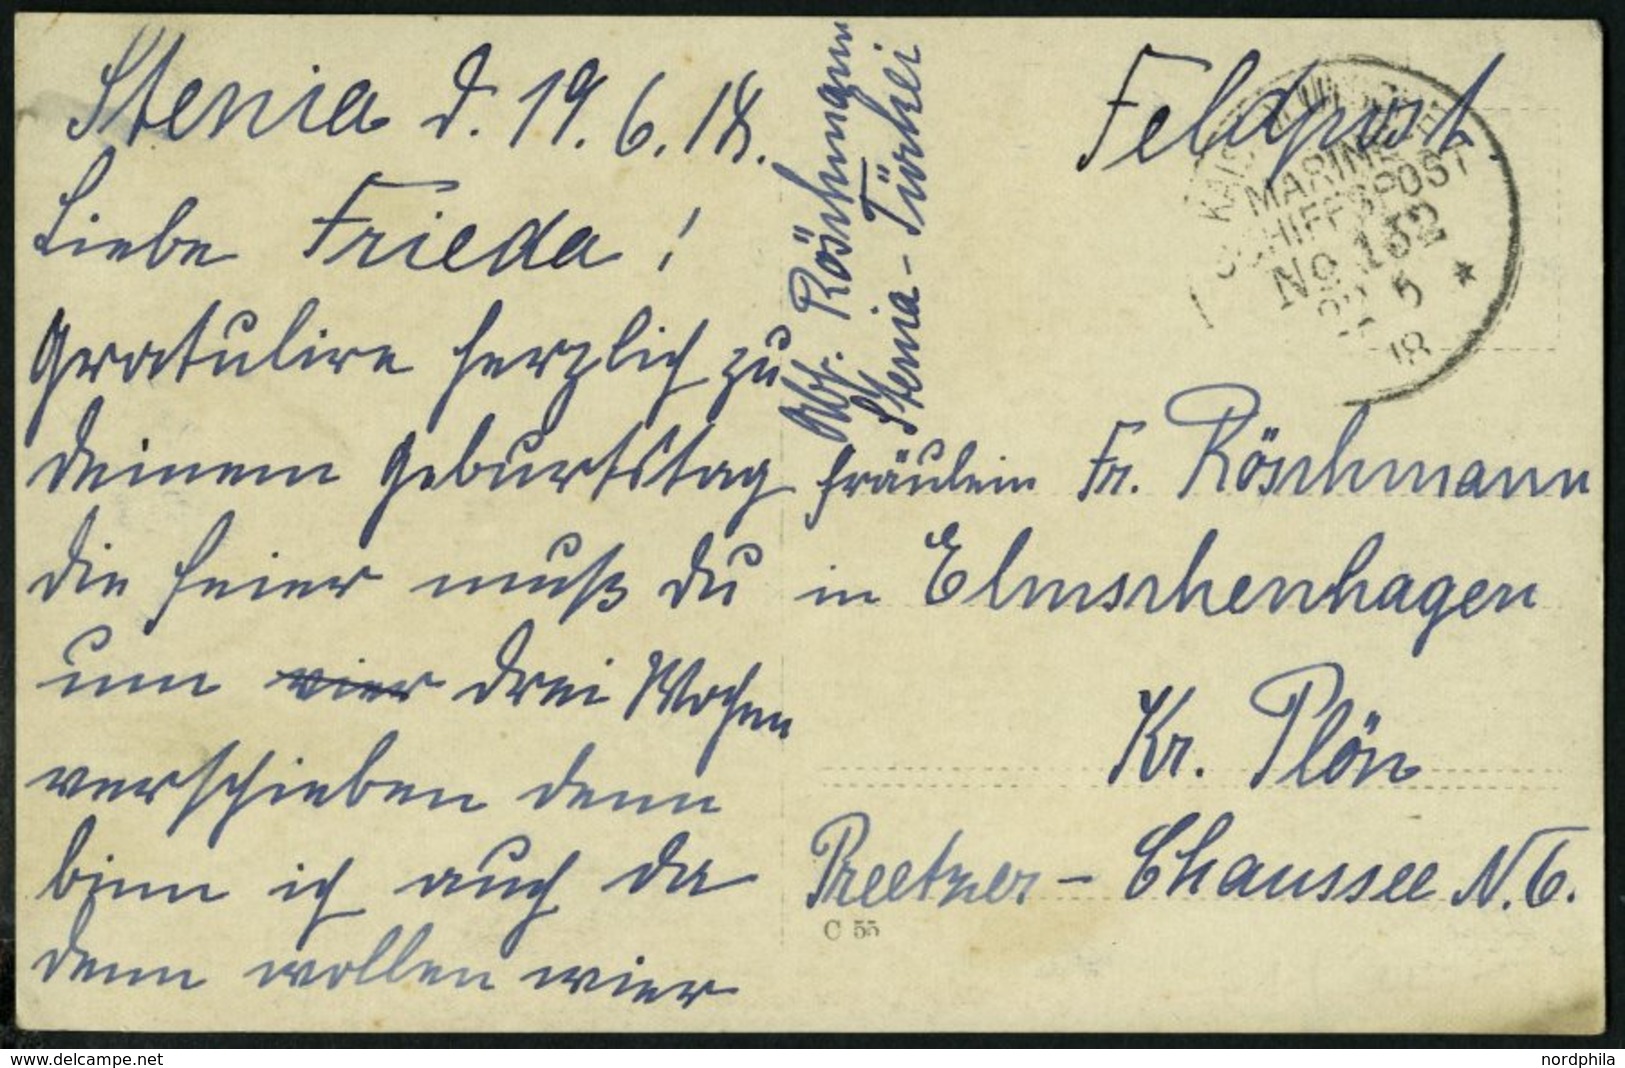 Stenia d. 19. 6. 18.
Liebe Frieda!
Gratulire herzlich zu
deinem Geburtstag
die Feier muß du
um vier drei Wochen
verschieben denn
binn ich auch da
denn wollen wier
Abs. Röschmann
Stenia - Türkei
Feldpost.
MARINE
SCHIFFSPOST
No 132
22 6
18
Fräulein Fr. Röschmann
in Elmschenhagen
Kr. Plön
Preetzer - Chaussee N. 6.
C 55
www.delcampe.net
nordphila